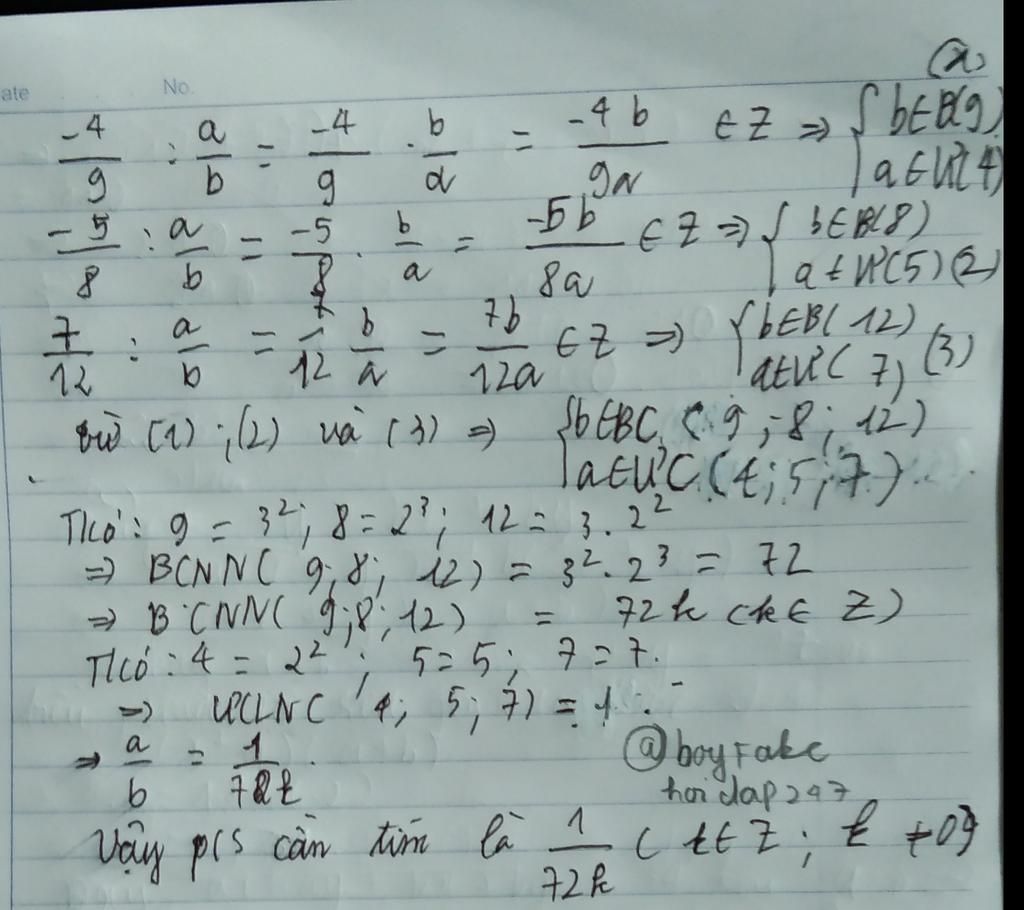 ate No. (1)
-4/9 : a/b = -4/9 . b/a = -4b/9a ∈ Z => { b∈B(9) a∈Ư(4)
-5/8 : a/b = -5/8 . b/a = -5b/8a ∈ Z => { b∈B(8) a∈Ư(5) (2)
7/12 : a/b = 7/12 b/a = 7b/12a ∈ Z => { b∈B(12) a∈Ư(7) (3)
từ (1) ;(2) và (3) => { b∈BC (9;8;12) a∈ƯC (4;5;7)
Tcó: 9 = 3²; 8 = 2³; 12 = 3.2²
=> BCNN( 9;8; 12) = 3².2³ = 72
=> BCNN( 9;8;12) = 72k (k∈ Z)
Tcó: 4 = 2²; 5=5; 7=7.
=> ƯCLN( 4; 5; 7) = 1.
=> a/b = 1/72k.
@boyfake
hoidap247
Vậy p(s cần tìm là 1/72k ( k∈ Z; k ≠0)